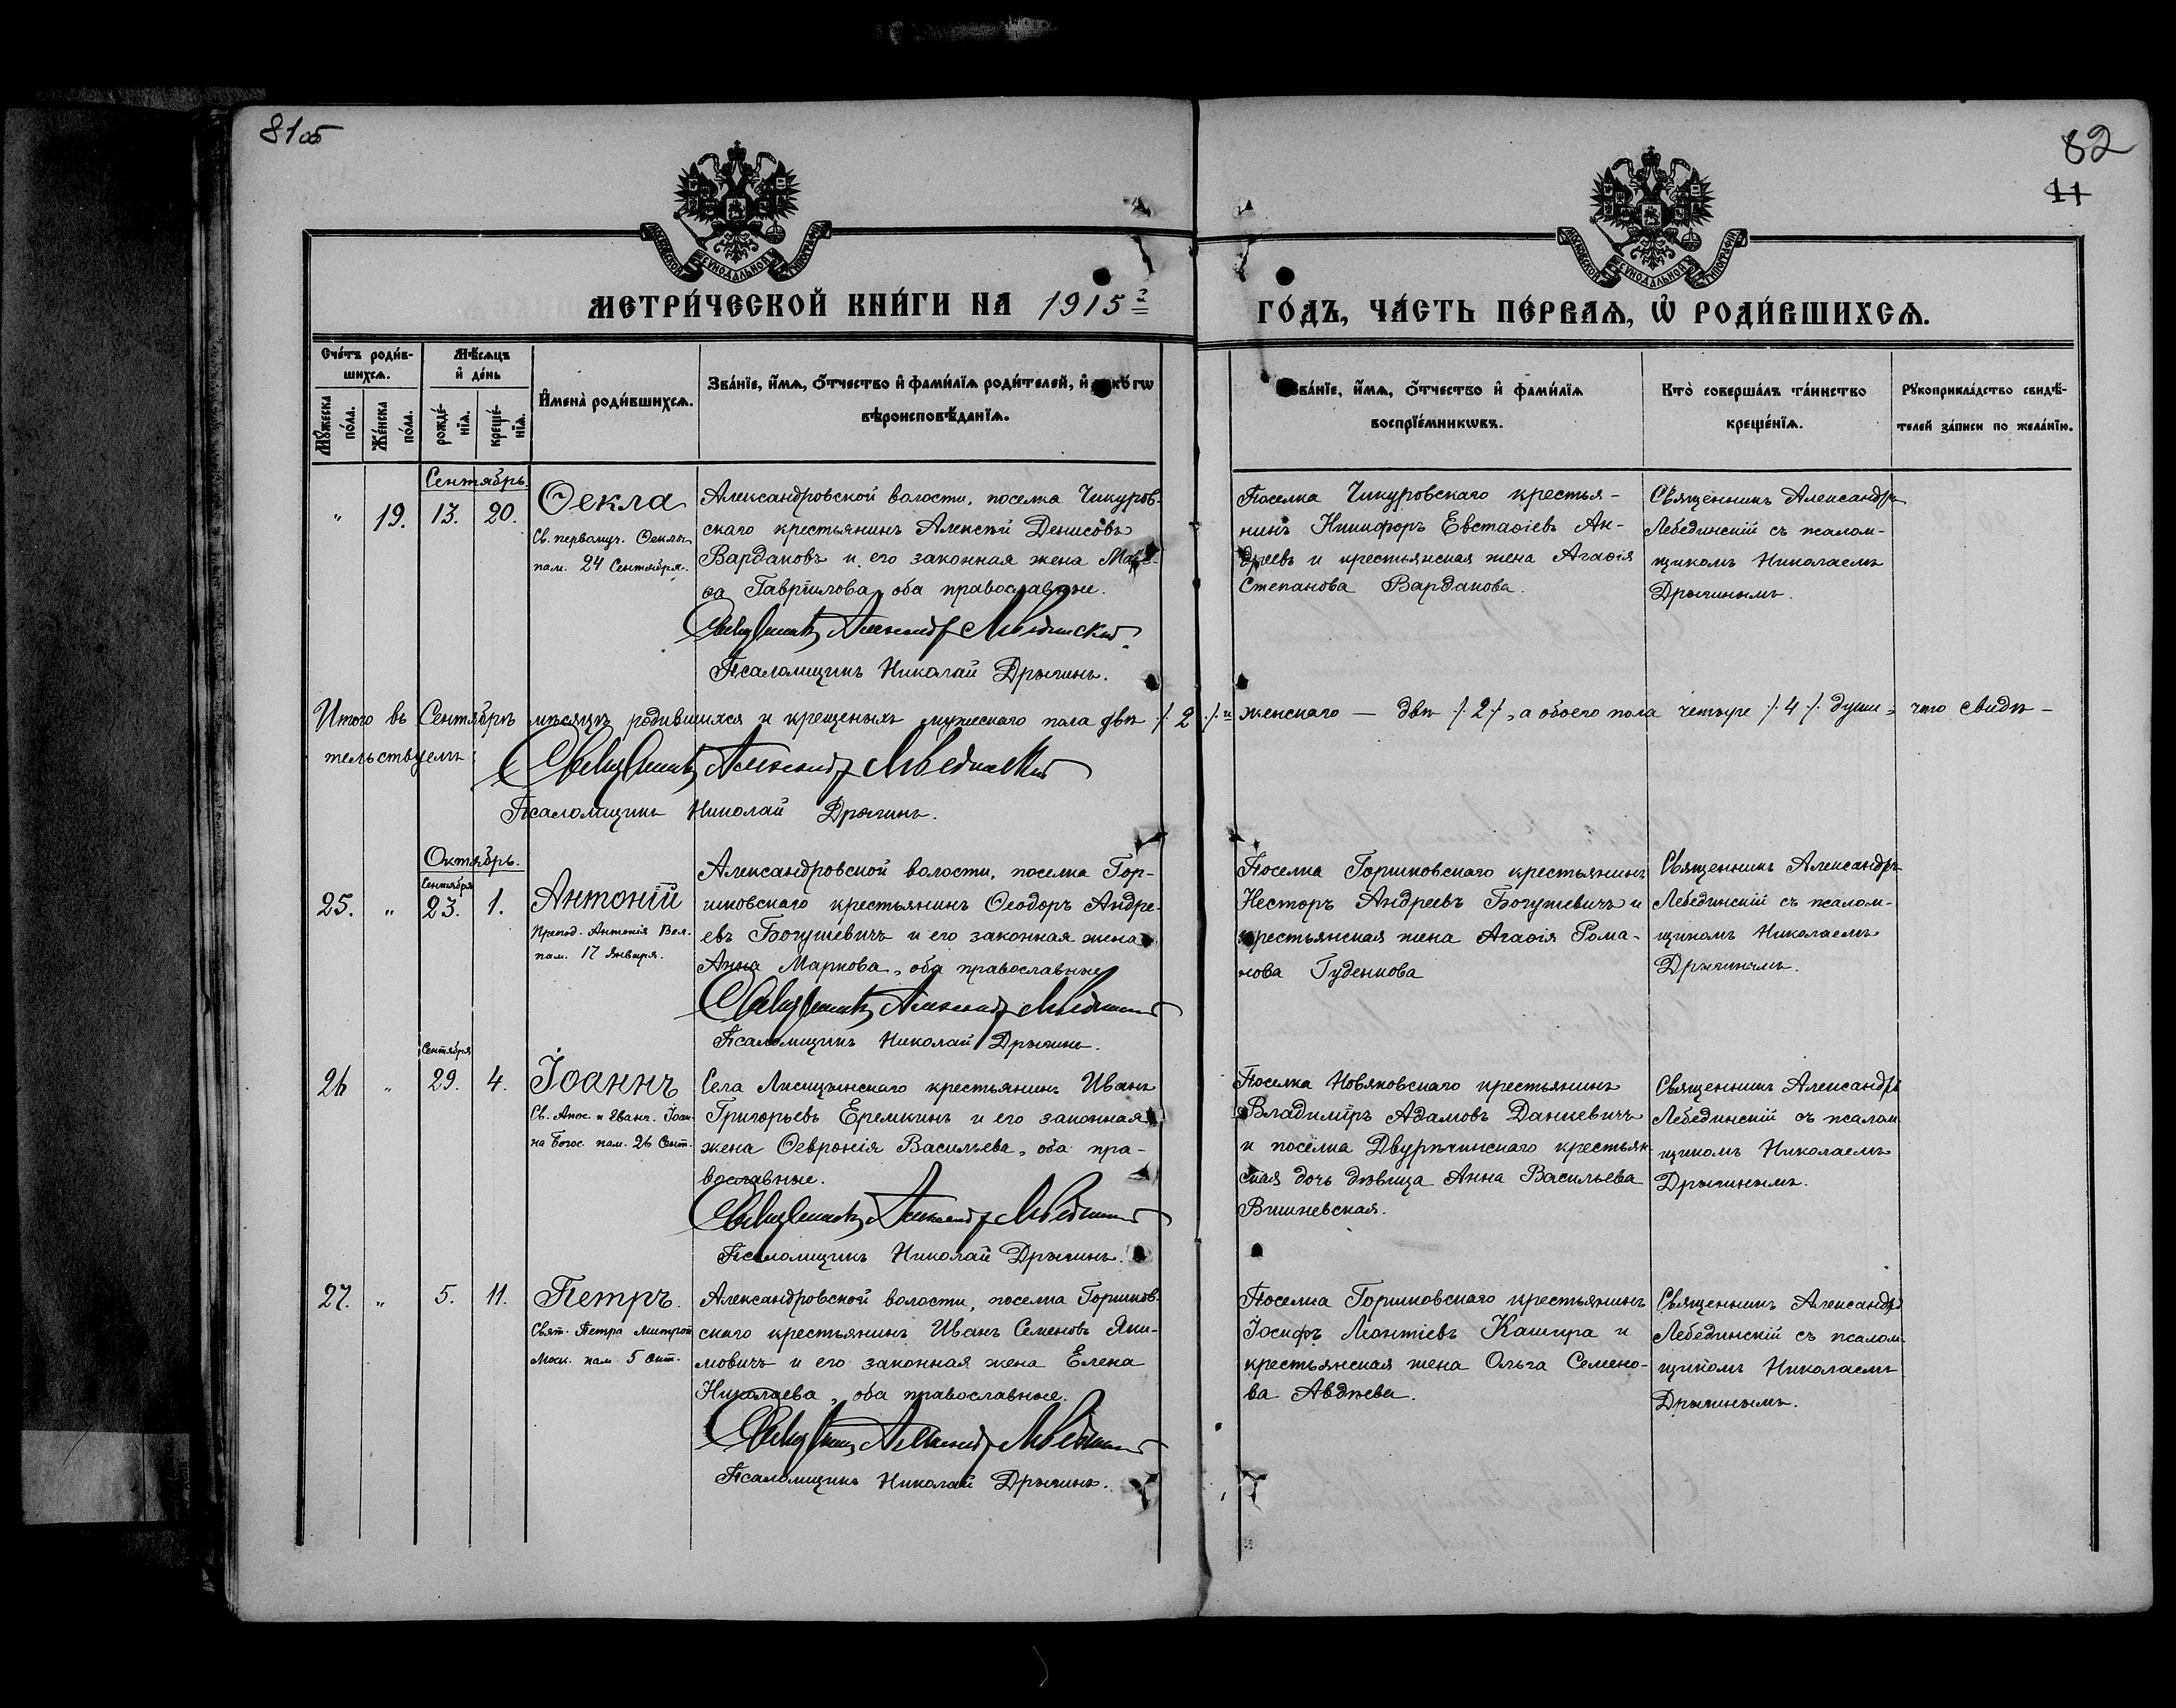 81об
82
11
МОСКОВСКОЙ СУНОДАЛЬНОЙ ТИПОГРАФІИ
МОСКОВСКОЙ СУНОДАЛЬНОЙ ТИПОГРАФІИ
МЕТРИ́ЧЕСКОЙ КНИ́ГИ НА 1915й ГО́ДЪ, ЧА́СТЬ ПЕ́РВАѦ, Ѡ҆ РОДИ́ВШИХСѦ.
Сче́тъ роди́в-
шихсѧ.
Мꙋ́жеска по́ла.
Же́нска по́ла.
Мѣ́сѧцъ
и҆ де́нь
рожде́-
нїѧ.
креще́-
нїѧ.
И҆мена̀ роди́вшихсѧ.
Зва́нїе, и҆́мѧ, ѻ҆́тчество и҆ фами́лїѧ роди́телей, и҆ ко́гѡ
вѣроисповѣ́данїѧ.
Зва́нїе, и҆́мѧ, ѻ҆́тчество и҆ фами́лїѧ
воспрїе́мникѡвъ.
Кто̀ соверша́лъ та́инство
креще́нїѧ.
Рꙋкоприкла́дство свидѣ́-
телей за́писи по жела́нїю.
Сентябрь.
" 19. 13. 20.
Ѳекла
Св. первомуч. Ѳеклы
пам. 24 Сентября.
Александровской волости, поселка Чикуров-
скаго крестьянинъ Алексѣй Денисовъ
Вардаковъ и его законная жена
Гаврiилова, оба православные.
Священникъ Александръ Лебединскій
Псаломщикъ Николай Дрыгинъ.
Поселка Чикуровскаго крестья-
нинъ Никифоръ Евстаѳіевъ Ан-
дреевъ и крестьянская жена Агаѳія
Степанова Вардакова.
Священникъ Александръ
Лебединскій съ псалом-
щикомъ Николаемъ
Дрыгинымъ.
Итого въ Сентябрѣ мѣсяцѣ родившихся и крещеныхъ мужескаго пола двѣ /. 2 /. и женскаго — двѣ /. 2 /., а обоего пола четыре /. 4 /. души, что свидѣ-
тельствуемъ:
Священникъ Александръ Лебединскій
Псаломщикъ Николай Дрыгинъ.
Октябрь.
Сентября
25. " 23. 1.
Антонiй
Препод. Антонія Вел.
пам. 17 Января.
Александровской волости, поселка Гор-
шковскаго крестьянинъ Ѳеодоръ Андре-
евъ Богушевичъ и его законная жена
Анна Маркова, оба православные
Священникъ Александръ Лебединскій
Псаломщикъ Николай Дрыгинъ.
Поселка Горшковскаго крестьянинъ
Несторъ Андреевъ Богушевичъ и
крестьянская жена Агаѳія Рома-
нова Гуденкова
Священникъ Александръ
Лебединскій съ псалом-
щикомъ Николаемъ
Дрыгинымъ.
Сентября
26 " 29. 4.
Іоаннъ
Св. Апос. и Еванг. Іоан-
на Богос. пам. 26 Сент.
Села Лисицынскаго крестьянинъ Иванъ
Григорьевъ Еремкинъ и его законная
жена Ѳевронія Васильева, оба пра-
вославные.
Священникъ Александръ Лебединскій
Псаломщикъ Николай Дрыгинъ.
Поселка Новяковскаго крестьянинъ
Владимiръ Адамовъ Данкевичъ
и поселка Двурѣчинскаго крестьян-
ская дочь дѣвица Анна Васильева
Вишневская.
Священникъ Александръ
Лебединскій съ псалом-
щикомъ Николаемъ
Дрыгинымъ.
27. " 5. 11.
Петръ.
Свят. Петра митроп
Моск. пам. 5 Окт.
Александровской волости, поселка Горшков-
скаго крестьянинъ Иванъ Семеновъ Яки-
мовичъ и его законная жена Елена
Николаева, оба православные.
Священникъ Александръ Лебединскій
Псаломщикъ Николай Дрыгинъ.
Поселка Горшковскаго крестьянинъ
Іосифъ Леонтіевъ Кашира и
крестьянская жена Ольга Семено-
ва Авдѣева.
Священникъ Александръ
Лебединскій съ псалом-
щикомъ Николаемъ
Дрыгинымъ.